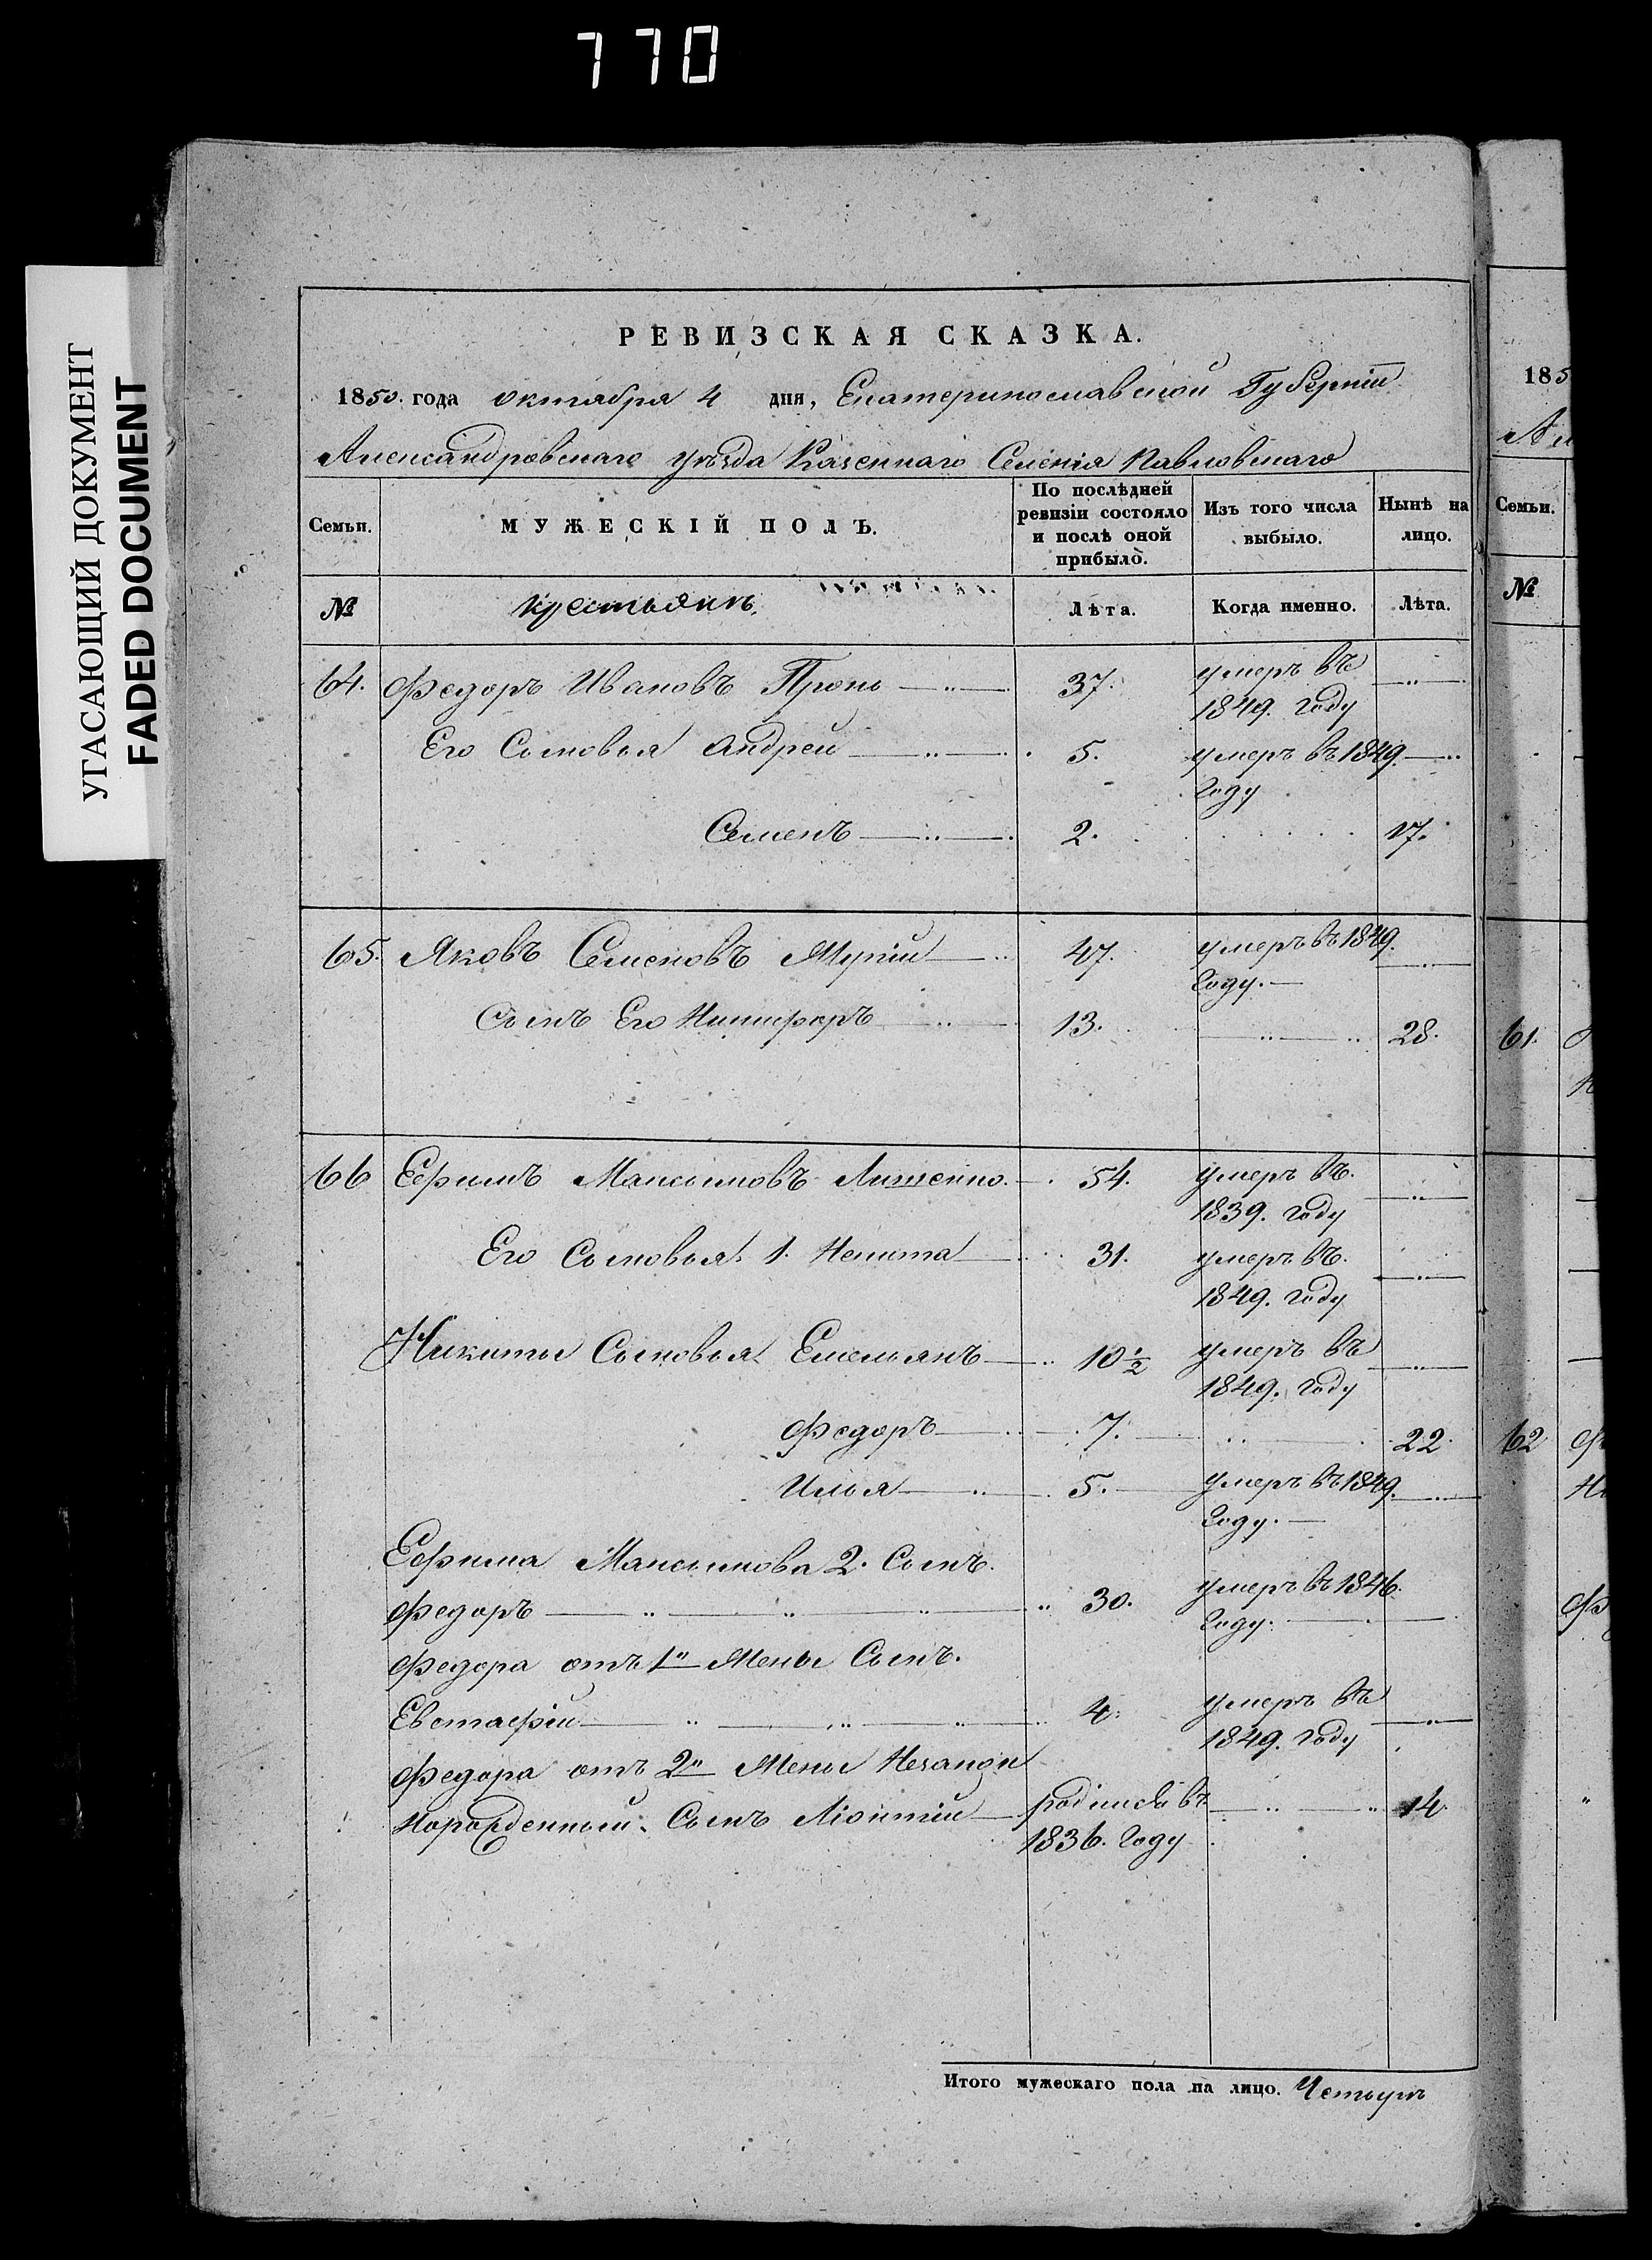 770
УГАСАЮЩИЙ ДОКУМЕНТ
FADED DOCUMENT
РЕВИЗСКАЯ СКАЗКА.
1850. года октября 4 дня, Екатеринославской Губерніи
Александровскаго уѣзда Казеннаго Селенія Павловскаго
Семьи. МУЖЕСКІЙ ПОЛЪ. По послѣдней ревизіи состояло и послѣ оной прибыло. Изъ того числа выбыло. Нынѣ на лицо.
№ крестьянъ. Лѣта. Когда именно. Лѣта.
64. Федоръ Ивановъ Пронь 37. умеръ въ
1849. году
Его Сыновья Андрей 5. умеръ въ 1849.
году
Семенъ 2. 17.
65. Яковъ Семеновъ 47. умеръ въ 1849.
году.
Сынъ Его Никифоръ 13. 28.
66 Ефимъ Максимовъ 54. умеръ въ.
1839. году
Его Сыновья 1. Некита 31. умеръ въ.
1849. году
Никиты Сыновья Емельянъ 10½ умеръ въ
1849. году
Федоръ 7. 22
Илья 5. умеръ въ 1849.
году.
Ефима Максимова 2. Сынъ.
Федоръ 30. умеръ въ 1846.
году.
Федора отъ 1й Жены Сынъ.
Евстафій 4. умеръ въ
1849. году
Федора отъ 2й Жены
Сынъ Ліонтій родился въ 14
1836. году
Итого мужескаго пола на лицо. Четыре
185
61.
62
Семьи.
№